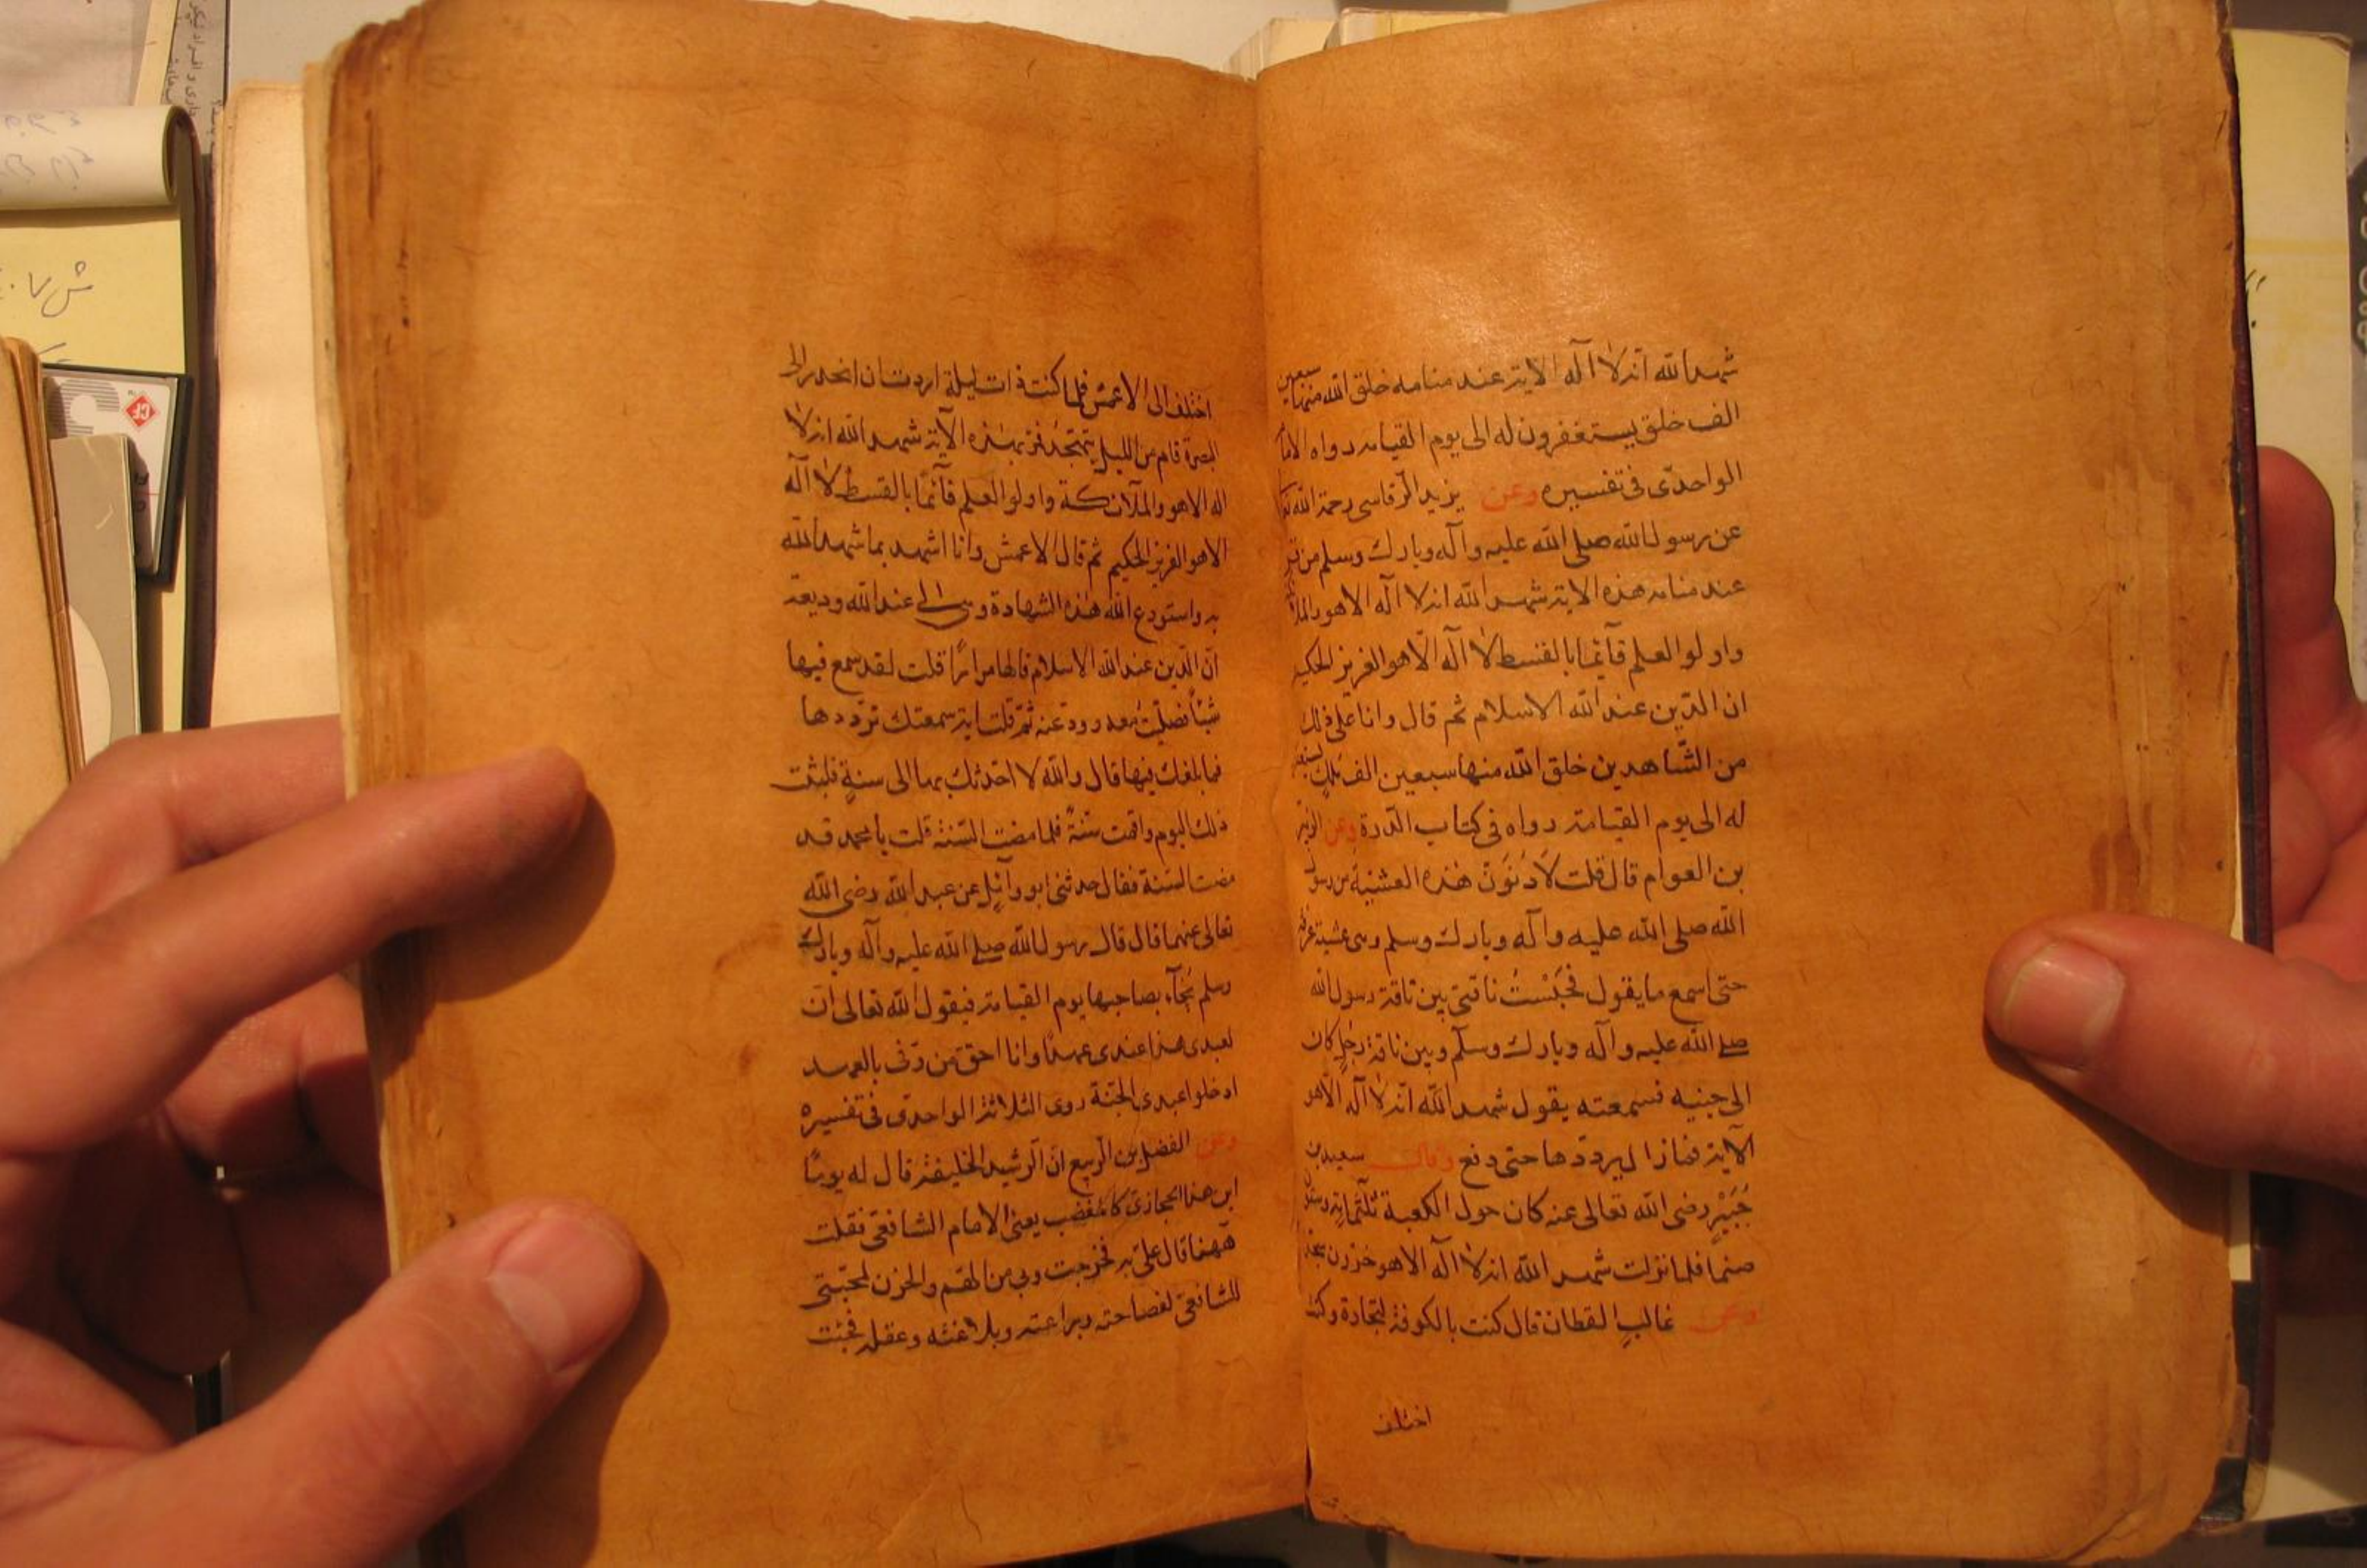 شهد الله انه لا اله الا ية عند منامه خلق الله منها سبعين
الف خلق يستغفرون له الى يوم القيامه رواه الاما
الواحدى فى تفسيره وعن يزيد الرقاسى رحمة الله تعا
عن رسول الله صلى الله عليه وآله وبارك وسلم من قر
عند منامه هذه الاية شهد الله انه لا اله الا هو والملا
واولو العلم قآئما بالقسط لا اله الا هو العزيز الحكيم
ان الدين عند الله الاسلام ثم قال وانا على ذلك
من الشاهدين خلق الله منها سبعين الف ملك يستغفر
له الى يوم القيامة رواه فى كتاب الدرة وعن الزبير
بن العوام قال قلت لادنون هذه العشية من رسول
الله صلى الله عليه وآله وبارك وسلم وهى عشية عرفة
حتى اسمع ما يقول فحبست ناقتى بين ناقة رسول الله
صلى الله عليه وآله وبارك وسلم وبين ناقة رجل كان
الى جنبه فسمعته يقول شهد الله انه لا اله الا هو
الآية فما زال يرددها حتى دفع وقال سعيد بن
جبير رضى الله تعالى عنه كان حول الكعبة ثلثمائة وستون
صنما فلما نزلت شهد الله انه لا اله الا هو خررن سجدا
وعن غالب القطان قال كنت بالكوفة لتجارة وكنت
اختلف
اختلف الى الاعمش فلما كنت ذات ليلة اردت ان انحدر الى
البصرة قام من الليل يتهجد فمر بهذه الآية شهد الله انه لا
اله الا هو والملآئكة واولو العلم قآئما بالقسط لا اله
الا هو العزيز الحكيم ثم قال الاعمش وانا اشهد بما شهد الله
به واستودع الله هذه الشهادة وهى لى عند الله وديعة
ان الدين عند الله الاسلام قالها مرارا قلت لقد سمع فيها
شيئا فصليت معه وودعته ثم قلت اية سمعتك ترددها
فما بلغك فيها قال والله لا احدثك بها الى سنة فلبثت
ذلك اليوم واقمت سنة فلما مضت السنة قلت يا محمد قد
مضت السنة فقال حدثنى ابو وآئل عن عبد الله رضى الله
تعالى عنهما قال قال رسول الله صلى الله عليه وآله وبارك
وسلم يجآء بصاحبها يوم القيامة فيقول الله تعالى ان
لعبدى هذا عندى عهدا وانا احق من وفى بالعهد
ادخلوا عبدى الجنة روى الثلاثة الواحدى فى تفسيره
وعن الفضل بن الربيع ان الرشيد الخليفة قال له يوما
اين هذا الحجازى كالمغضب يعنى الامام الشافعى فقلت
ههنا قال على به فخرجت وبى من الهم والحزن لمحبتى
للشافعى لفصاحته وبراعته وبلاغته وعقله فجئت